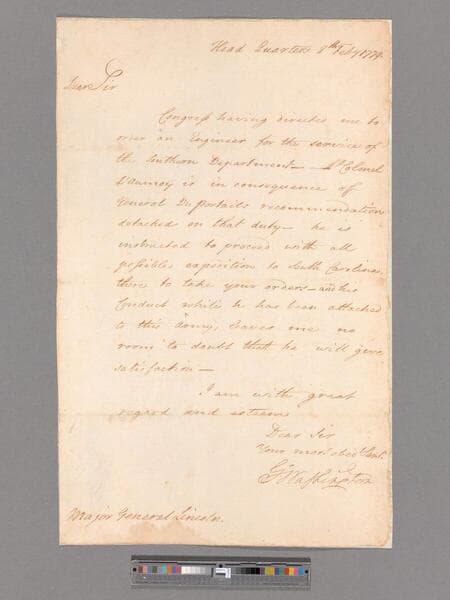 Head Quarters 8th Feby 1779
Dear Sir
Congress having directed me to
order an Engineer for the service of
the Southern Department — Lt Colonel
Laumoy is in consequence of
General Du portails recommendation
detached on that duty — he is
instructed to proceed with all
possible expedition to South Carolina,
there to take your orders — and his
Conduct while he has been attached
to this Army, leaves me no
room to doubt that he will give
satisfaction —
I am with great
regard and esteem
Dear Sir
Your most obedt Servt
Go Washington
Major General Lincoln.